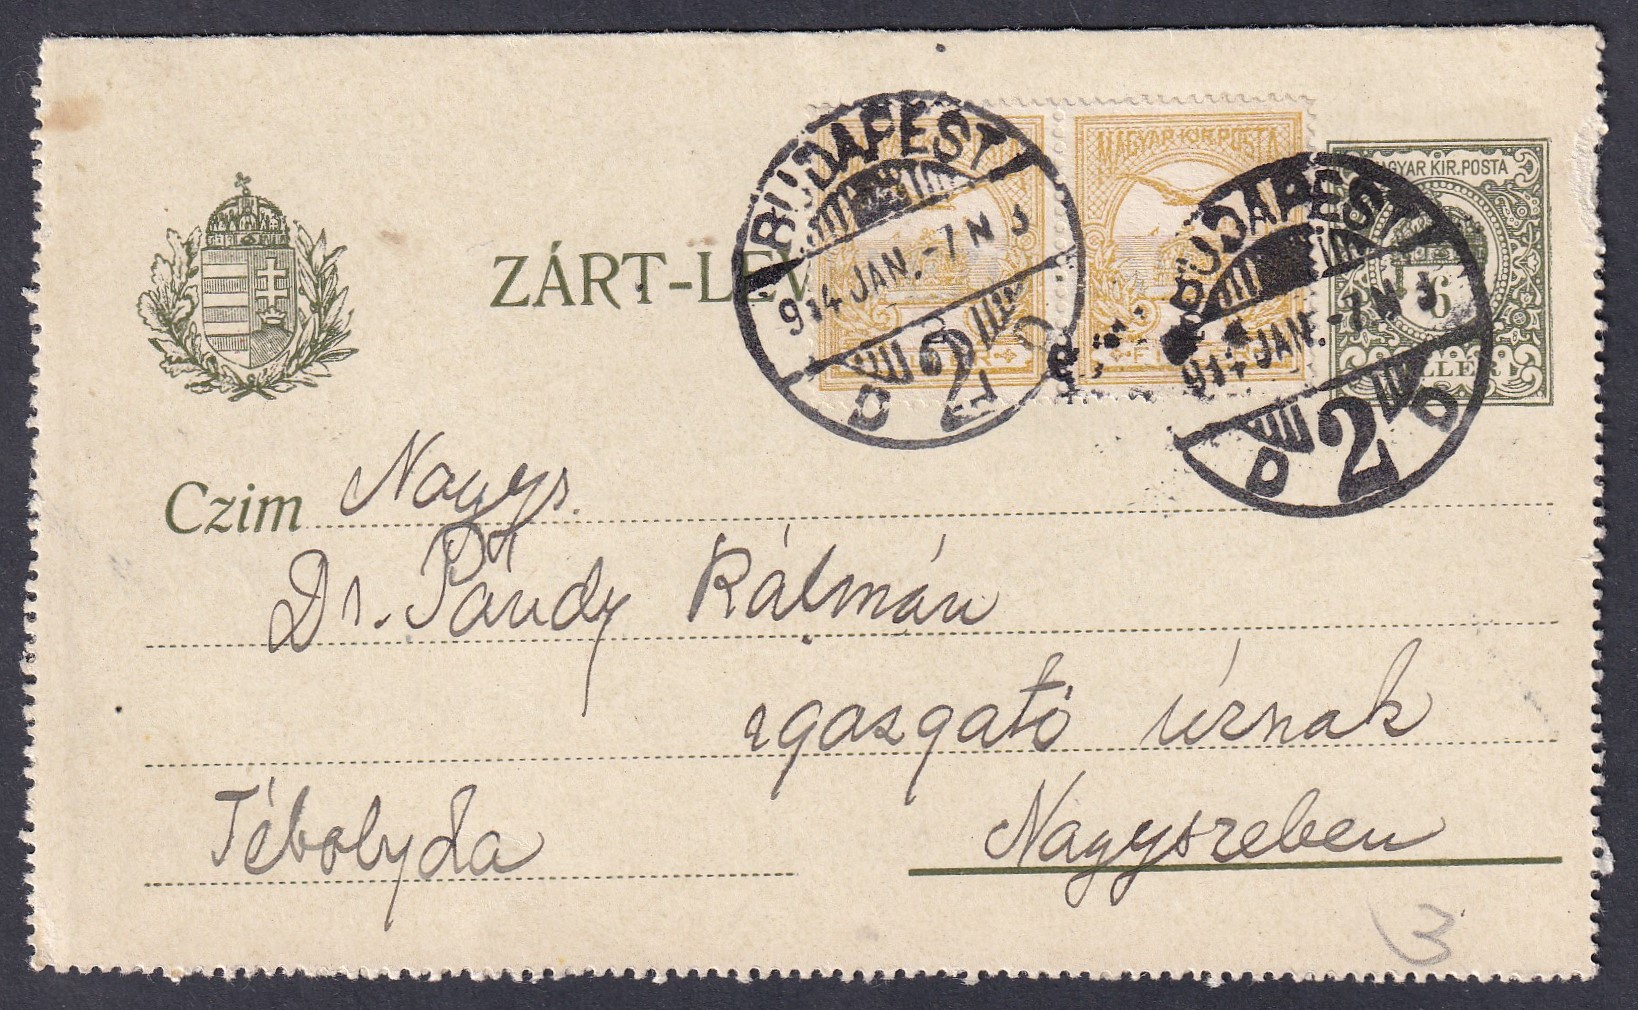 ZÁRT-LEV
BUDAPEST
914 JAN.-7 N 3
D 2 D
MAGYAR KIR. POSTA
FILLÉR
BUDAPEST
914 JAN.-7 N 3
D 2 D
MAGYAR KIR. POSTA
6
FILLÉR
Czim Nagys.
Dr. Pándy Kálmán
igazgató úrnak
Tébolyda Nagyszeben
3